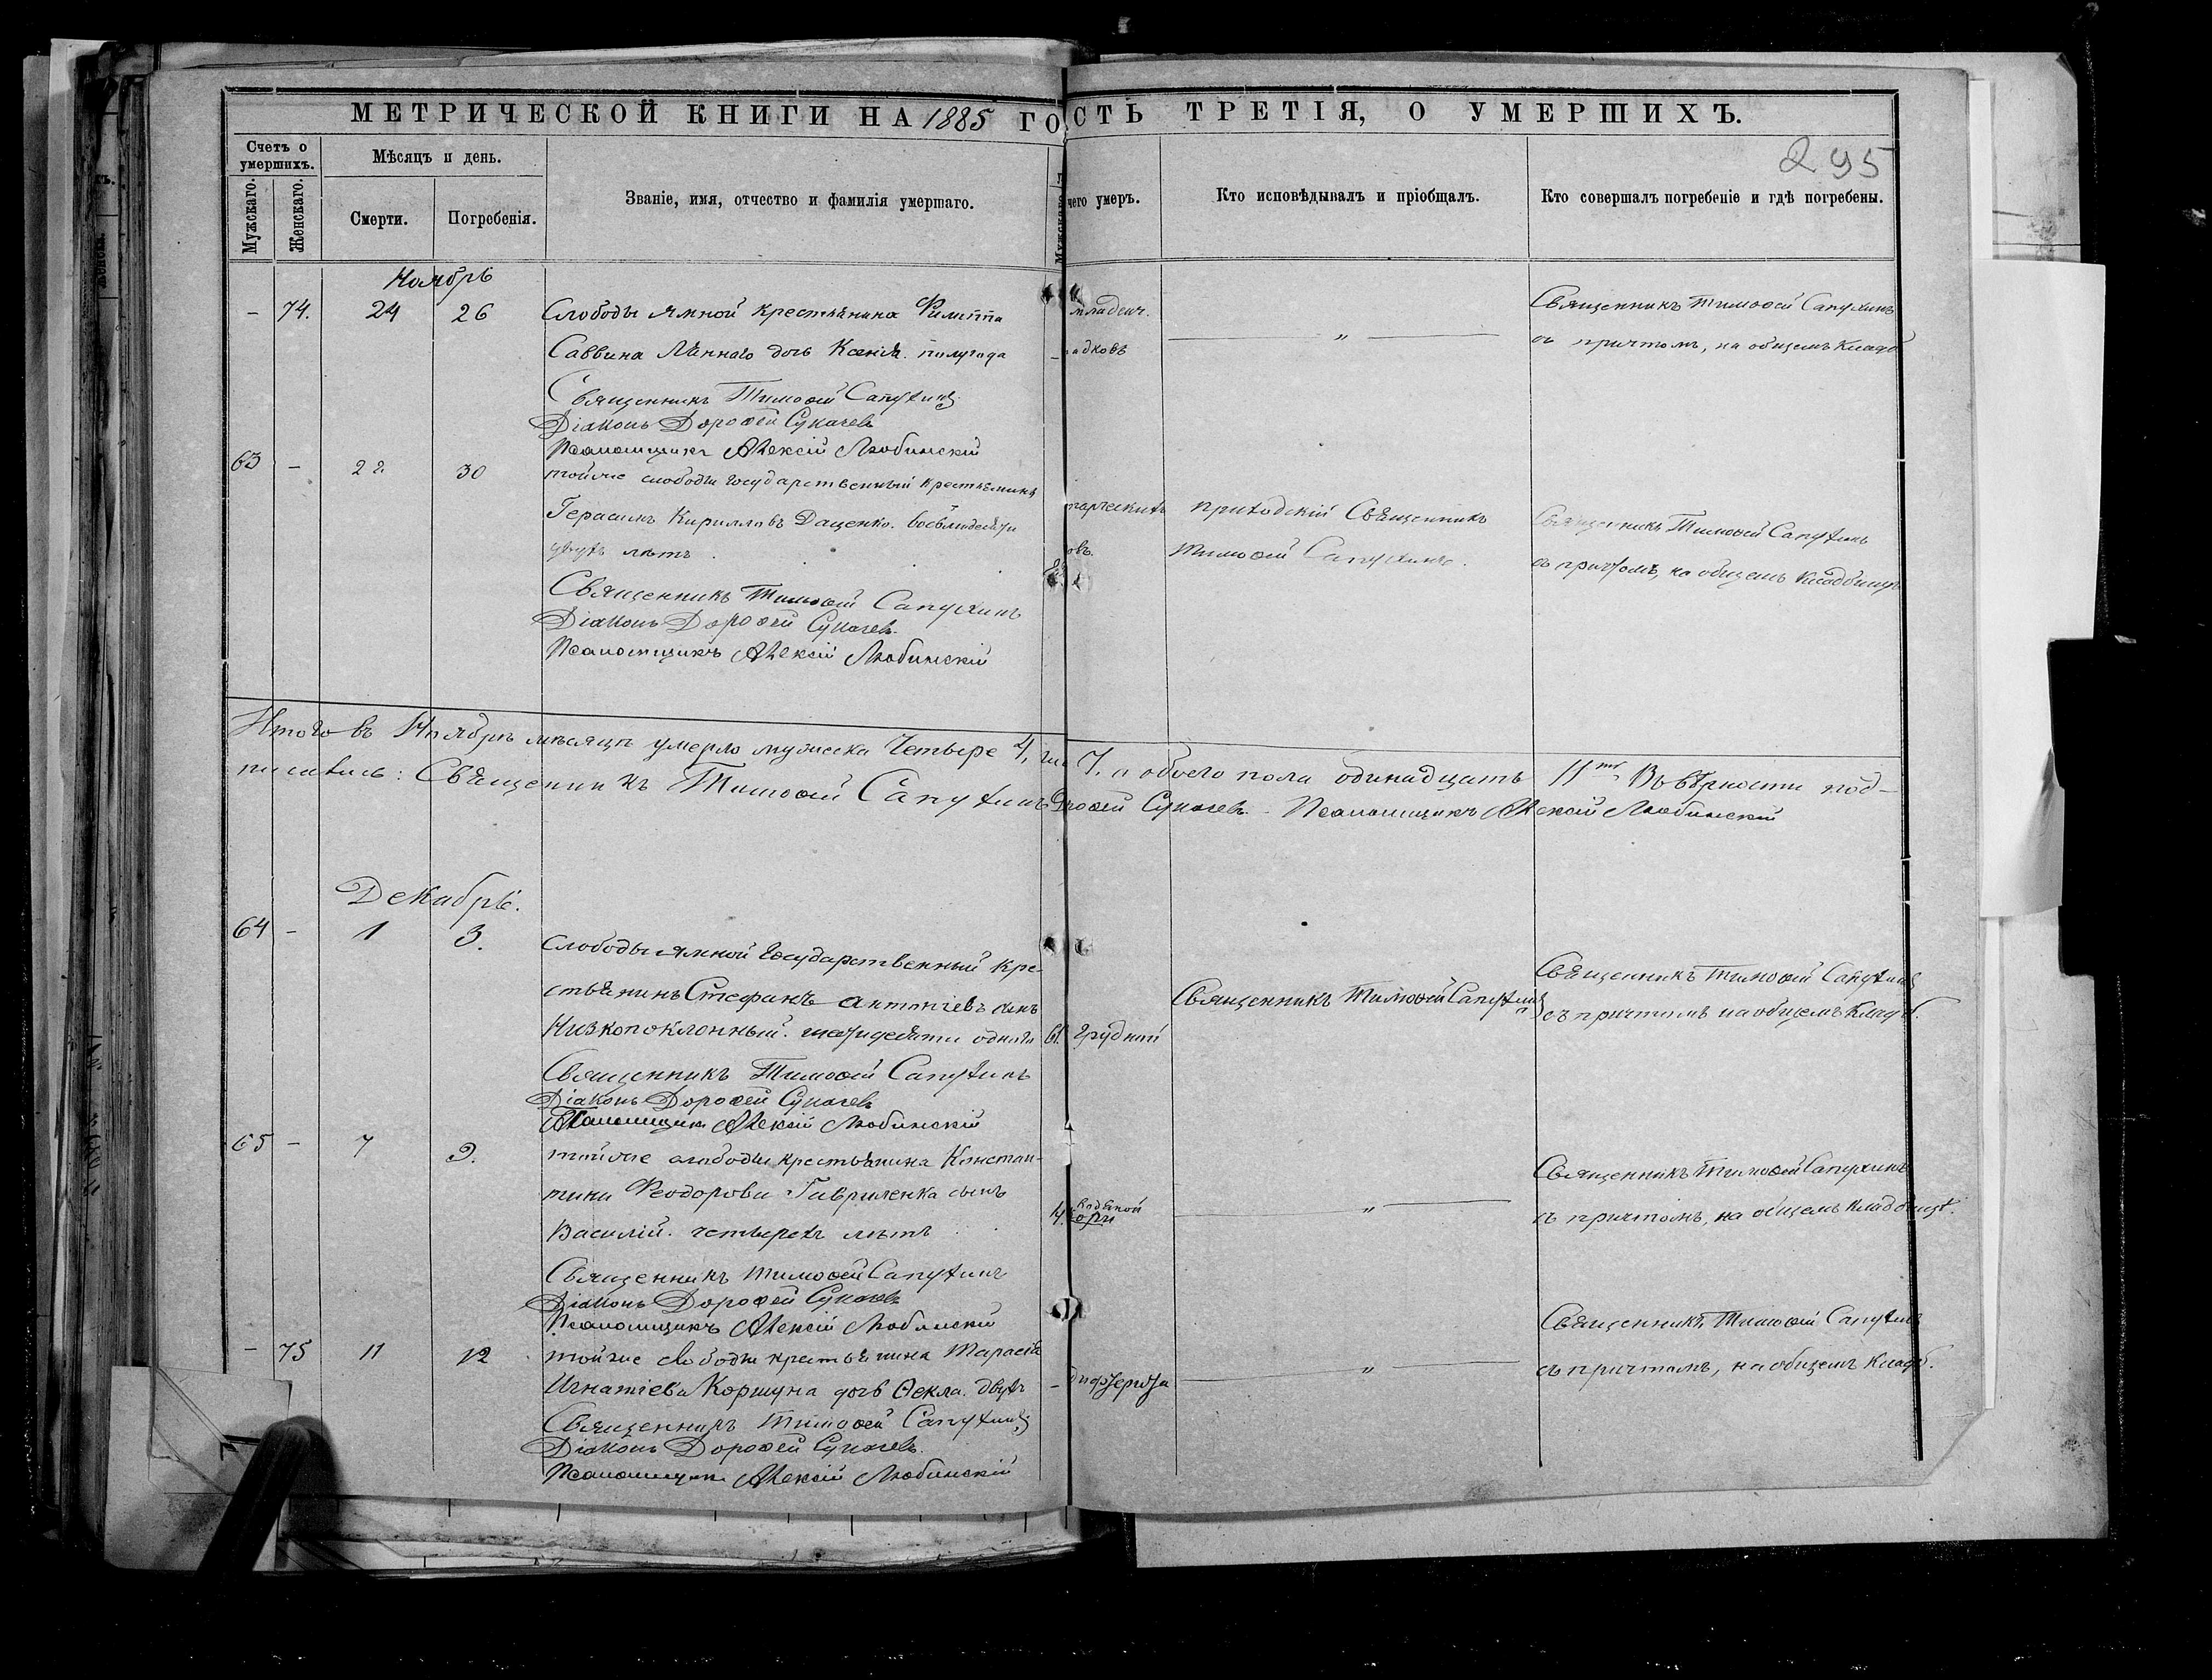 МЕТРИЧЕСКОЙ КНИГИ НА 1885 ГО
СТЬ ТРЕТІЯ, О УМЕРШИХЪ.
295
Счетъ о умершихъ.
Мѣсяцъ и день.
Мужскаго.
Женскаго.
Смерти.
Погребенія.
Званіе, имя, отчество и фамилія умершаго.
Мужскаго
чего умеръ.
Кто исповѣдывалъ и пріобщалъ.
Кто совершалъ погребеніе и гдѣ погребены.
Ноябрь
– 74. 24 26 Слободы Ямной крестьянина Филиппа
Саввина дочь Ксенія. полугода –
Священникъ Тимоѳей Сапухинъ
Діаконъ Дороѳей Сукачевъ
Псаломщикъ Алексій Любинскій
младен.
"
Священникъ Тимоѳей Сапухинъ
съ причтомъ, на общемъ кладб
63 – 28. 30 тойже слободы государственный крестьянинъ
Герасимъ Кирилловъ Даценко. восьмидесяти
двухъ лѣтъ.
Священникъ Тимоѳей Сапухинъ
Діаконъ Дороѳей Сукачевъ.
Псаломщикъ Алексій Любинскій
приходскій Священникъ
Тимоѳей Сапухинъ.
Священникъ Тимоѳей Сапухинъ
съ причтомъ, на общемъ кладбищѣ
Итого въ Ноябрѣ мѣсяцѣ умерло мужеска четыре 4, 7, а обоего пола одинадцать 11ть. Въ вѣрности под-
писались: Священникъ Тимоѳей Сапухинъ роѳей Сукачевъ. Псаломщикъ Алексій Любинскій
Декабрь.
64 – 1 3. Слободы Ямной государственный кре-
стьянинъ Стефанъ Антоніевъ сынъ
Низкопоклонный. шестидесяти одного 61. грудной
Священникъ Тимоѳей Сапухинъ
Діаконъ Дороѳей Сукачевъ
Псаломщикъ Алексій Любинскій
Священникъ Тимоѳей Сапухинъ
Священникъ Тимоѳей Сапухинъ
съ причтомъ на общемъ кладб.
65 – 7 9. тойже слободы крестьянина Констан-
тина Ѳеодорова Гавриленка сынъ
Василій. четырехъ лѣтъ 4.
Священникъ Тимоѳей Сапухинъ
Діаконъ Дороѳей Сукачевъ
Псаломщикъ Алексій Любинскій
"
Священникъ Тимоѳей Сапухинъ
съ причтомъ, на общемъ кладбищѣ.
– 75 11 12 тойже слободы крестьянина Тарасія
Игнатіева Коршуна дочь Ѳекла. двухъ – дифтерита
Священникъ Тимоѳей Сапухинъ
Діаконъ Дороѳей Сукачевъ.
Псаломщикъ Алексій Любинскій
"
Священникъ Тимоѳей Сапухинъ
съ причтомъ, на общемъ кладб.